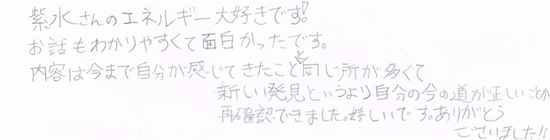 紫水さんのエネルギー大好きです!
お話もわかりやすくて面白かったです。
内容は今まで自分が感じてきたことと同じ所が多くて
新しい発見というより自分の今の道が正しいことが
再確認できました。嬉しいです。ありがとう
ございました!!